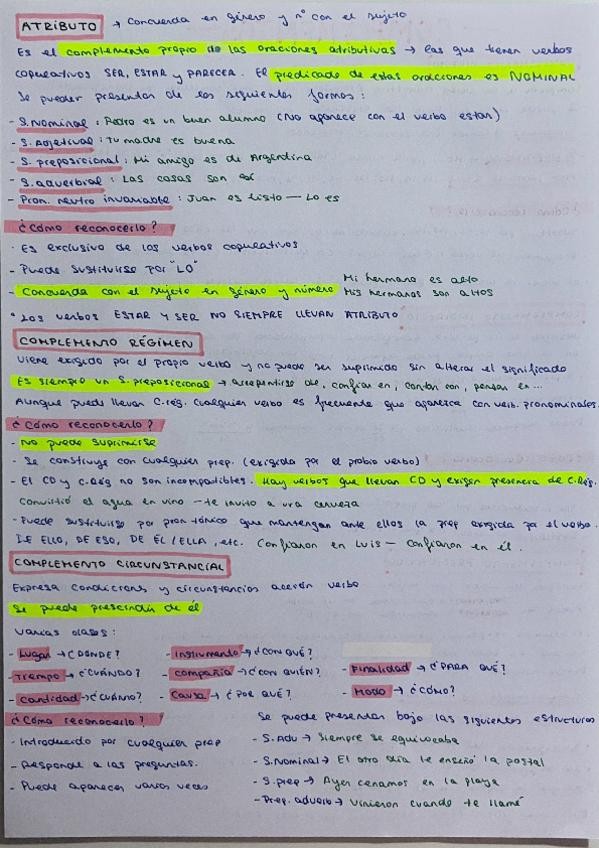 ATRIBUTO → Concuerda en género y nº con el sujeto
Es el complemento propio de las oraciones atributivas → las que tienen verbos
copulativos SER, ESTAR y PARECER. El predicado de estas oraciones es NOMINAL
Se pueden presentar de las siguientes formas:
- S. Nominal: Pedro es un buen alumno (No aparece con el verbo estar)
- S. Adjetival: Tu madre es buena
- S. preposicional: Mi amigo es de Argentina
- S. adverbial: Las cosas son así
- Pron. neutro invariable: Juan es listo — Lo es
¿Cómo reconocerlo?
· Es exclusivo de los verbos copulativos
- Puede sustituirse por "LO"
- Concuerda con el sujeto en género y número Mi hermano es alto
Mis hermanos son altos
* Los verbos ESTAR Y SER NO SIEMPRE LLEVAN ATRIBUTO
COMPLEMENTO RÉGIMEN
Viene exigido por el propio verbo y no puede ser suprimido sin alterar el significado
Es siempre un S. preposicional → arrepentirse de, confiar en, contar con, pensar en...
Aunque puede llevar C. rég. cualquier verbo es frecuente que aparezca con verb. pronominales.
¿Cómo reconocerlo?
- No puede suprimirse
- Se construye con cualquier prep. (exigida por el probio verbo)
- El CD y C.Rég no son incompatibles. Hay verbos que llevan CD y exigen presencia de C.Rég.
Convirtió el agua en vino — te invito a una cerveza
- Puede sustituirse por pron tónico que mantengan ante ellos la prep exigida por el verbo.
DE ELLO, DE ESO, DE ÉL / ELLA, etc. Confiaron en Luis — confiaron en él.
COMPLEMENTO CIRCUNSTANCIAL
Expresa condiciones y circunstancias acción verbo
Se puede prescindir de él
Varias clases:
- Lugar → ¿DÓNDE? - Instrumento → ¿CON QUÉ?
- Tiempo → ¿CUÁNDO? - compañía → ¿CON QUIÉN? - Finalidad → ¿PARA QUÉ?
- Cantidad → ¿CUÁNTO? - Causa → ¿POR QUÉ? - Modo → ¿CÓMO?
¿Cómo reconocerlo? Se puede presentar bajo las siguientes estructuras
- Introducido por cualquier prep - S. Adv → Siempre se equivocaba
- Responde a las preguntas. - S. Nominal → El otro día te enseñó la postal
- Puede aparecer varias veces - S. prep → Ayer cenamos en la playa
- Prep. adverb → vinieron cuando te llamé